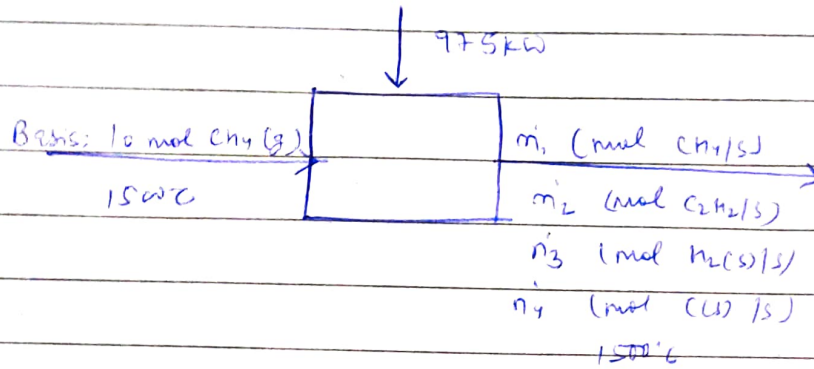 975kW
Basis: 10 mol CH4 (g)
1500°C
ṅ1 (mol CH4/s)
ṅ2 (mol C2H2/s)
ṅ3 (mol H2(s)/s)
ṅ4 (mol C(s) /s)
1500°C